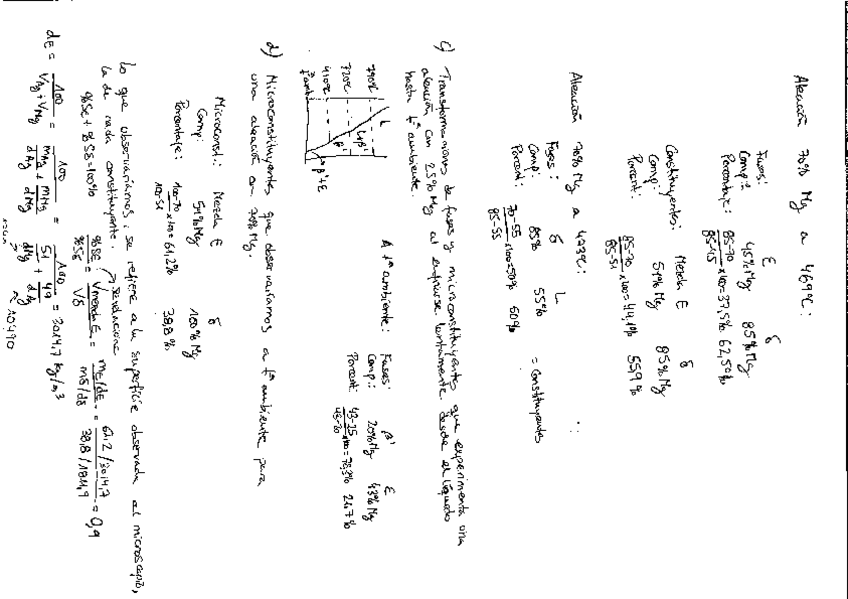 Aleación 70% Mg a 469ºC:
Fases: ε δ
Comp: 45% Mg 85% Mg
Porcentaje: 85-70/85-45 x100 = 37,5% 62,5%
Constituyentes: Mezcla E δ
Comp: 51% Mg 85% Mg
Porcent: 85-70/85-51 x100 = 44,1% 55,9%
Aleación 70% Mg a 473ºC:
Fases: δ L
Comp: 85% 55%
Porcent: 70-55/85-55 x100 = 50% 50%
= Constituyentes
c) Transformaciones de fases y microconstituyentes que experimenta una
aleación con 25% Mg al enfriarse lentamente desde el líquido
hasta tª ambiente.
790ºC
720ºC
410ºC
tª amb
L
L+β
β
β'+ε
A tª ambiente:
Fases: β' ε
Comp: 20% Mg 43% Mg
Porcent: 43-25/43-20 x100 = 78,3% 21,7%
d) Microconstituyentes que observaríamos a tª ambiente para
una aleación con 70% Mg.
Microconst: Mezcla E δ
Comp: 51% Mg 100% Mg
Porcentaje: 100-70/100-51 x100 = 61,2% 38,8%
Lo que observaríamos, se refiere a la superficie observada al microscopio,
la de cada constituyente.
%SE + %Sδ = 100%
%SE/%Sδ = Vmezcla E/Vδ = mE/dE / mδ/dδ = 61,2/3014,7 / 38,8/1811,9 = 0,9
dE = 100/VAg+VMg = 100/ mAg/dAg + mMg/dMg = 100/ 51/dMg + 49/dAg = 3014,7 kg/m³
10490